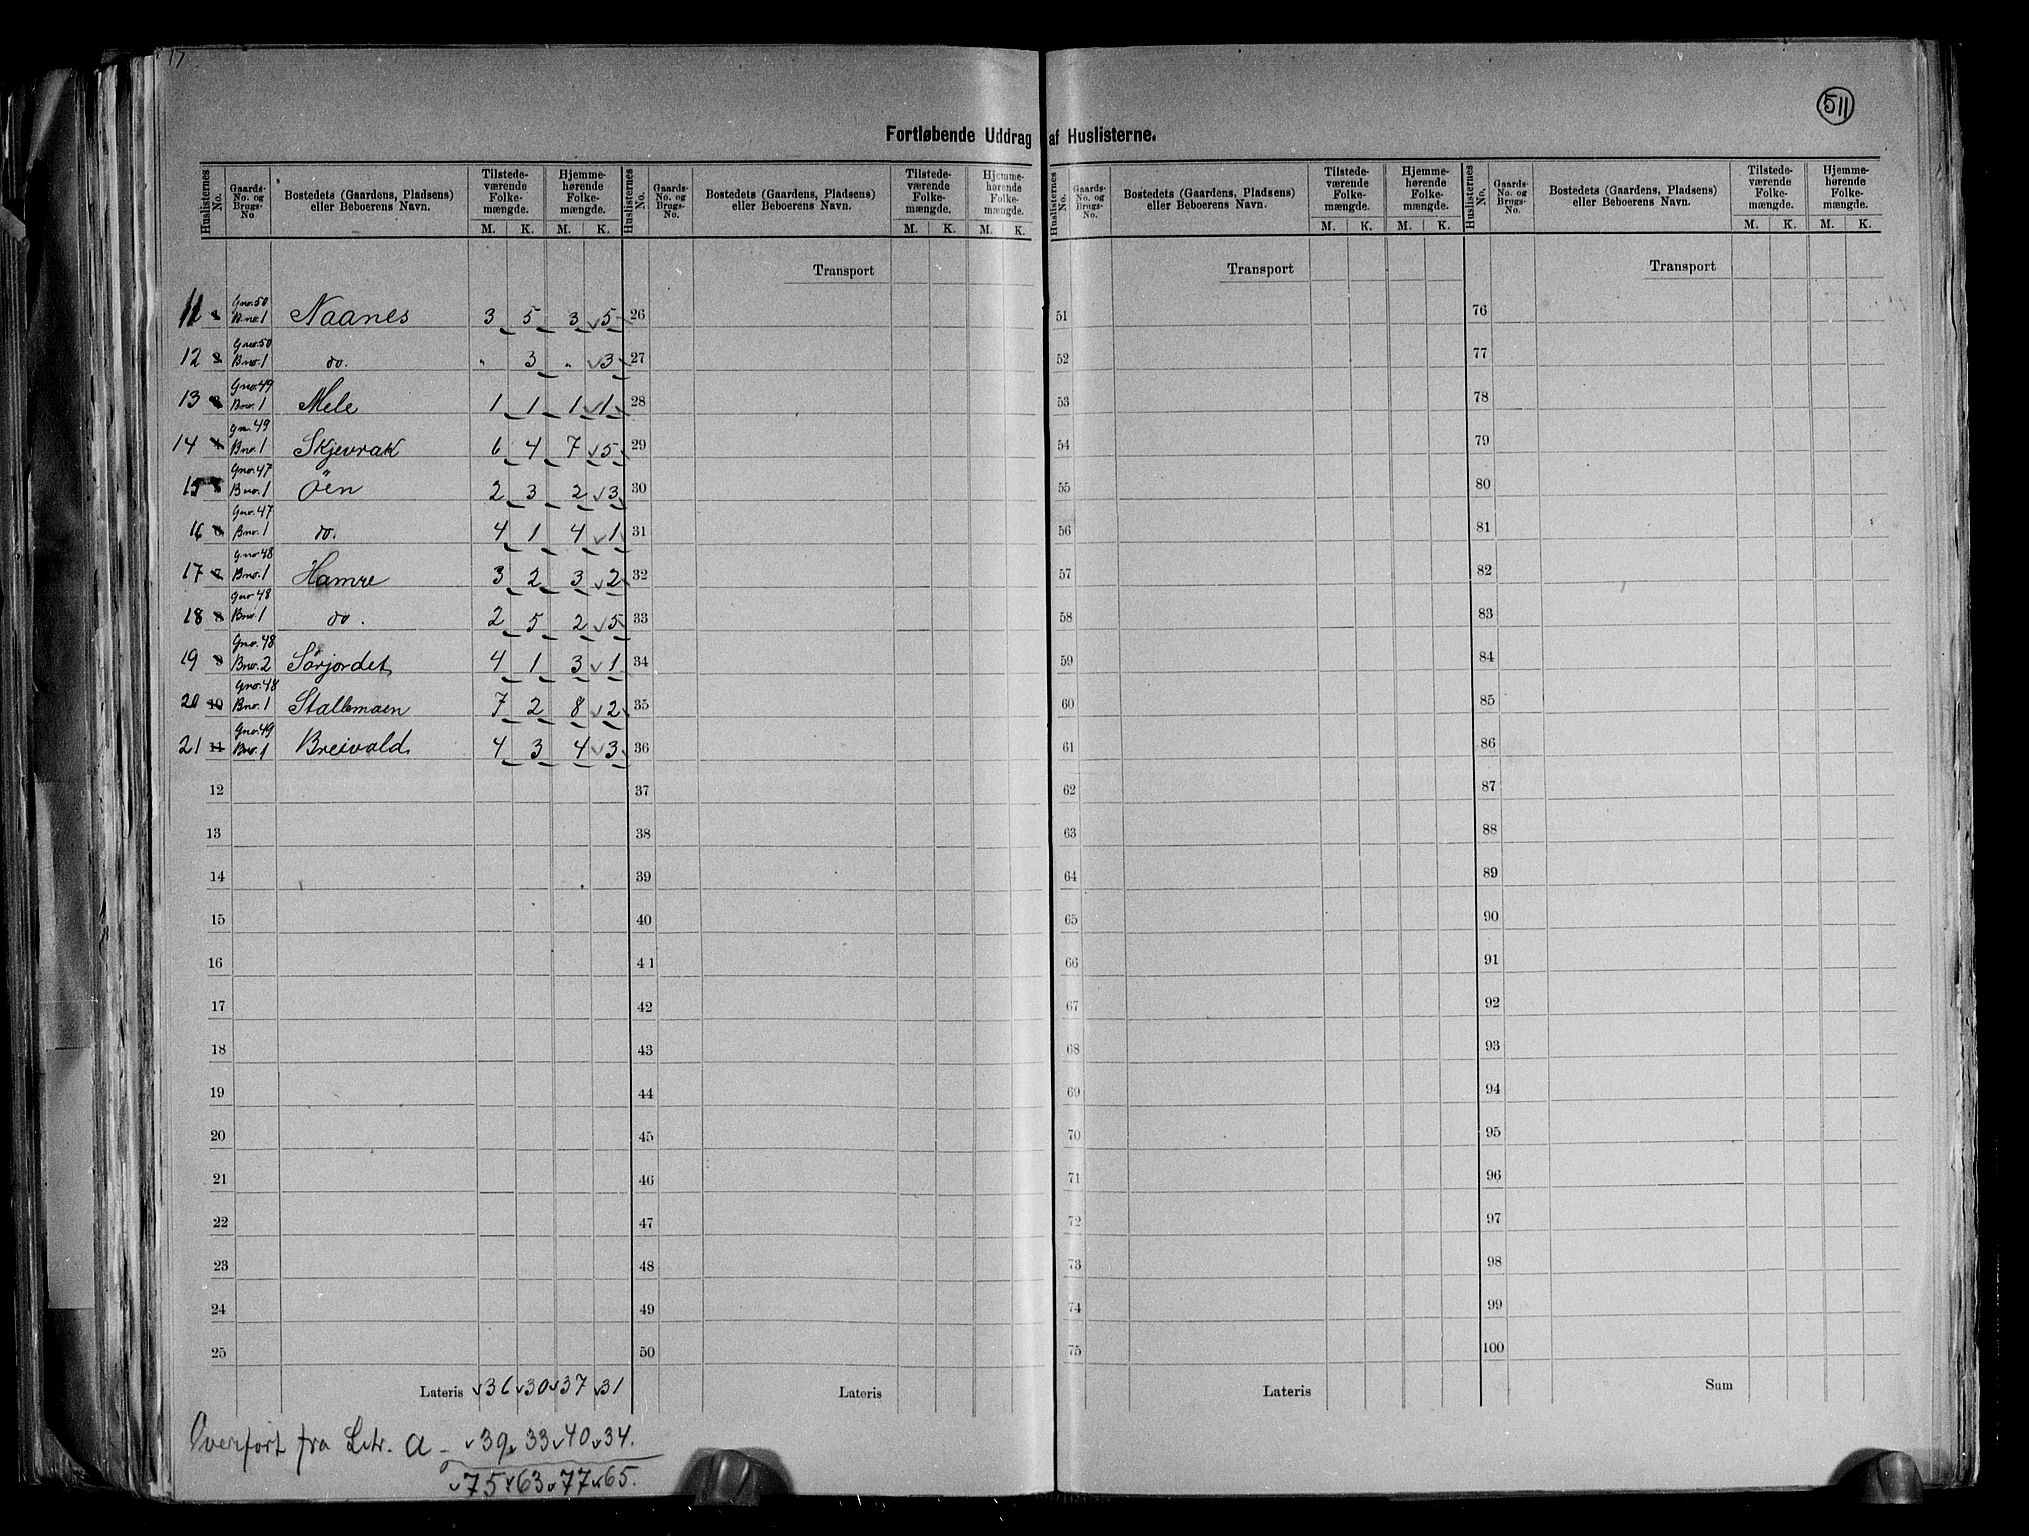 17
511
Fortløbende Uddrag af Huslisterne.
Huslisternes No. | Gaards-No. og Brugs-No. | Bostedets (Gaardens, Pladsens) eller Beboerens Navn. | Tilstedeværende Folkemængde. M. K. | Hjemmehørende Folkemængde. M. K.
Huslisternes No. | Gaards-No. og Brugs-No. | Bostedets (Gaardens, Pladsens) eller Beboerens Navn. | Tilstedeværende Folkemængde. M. K. | Hjemmehørende Folkemængde. M. K.
Huslisternes No. | Gaards-No. og Brugs-No. | Bostedets (Gaardens, Pladsens) eller Beboerens Navn. | Tilstedeværende Folkemængde. M. K. | Hjemmehørende Folkemængde. M. K.
Huslisternes No. | Gaards-No. og Brugs-No. | Bostedets (Gaardens, Pladsens) eller Beboerens Navn. | Tilstedeværende Folkemængde. M. K. | Hjemmehørende Folkemængde. M. K.
Transport Transport Transport
11 Gno. 50 Bno. 1 Naanes 3 5 3 5 26 51 76
12 Gno. 50 Bno. 1 do. " 3 " 3 27 52 77
13 Gno. 49 Bno. 1 Mele 1 1 1 1 28 53 78
14 Gno. 49 Bno. 1 Skjevrak 6 4 7 5 29 54 79
15 Gno. 47 Bno. 1 Øen 2 3 2 3 30 55 80
16 Gno. 47 Bno. 1 do. 4 1 4 1 31 56 81
17 Gno. 48 Bno. 1 Hamre 3 2 3 2 32 57 82
18 Gno. 48 Bno. 1 do. 2 5 2 5 33 58 83
19 Gno. 48 Bno. 2 Sørjordet 4 1 3 1 34 59 84
20 10 Gno. 48 Bno. 1 Stallemoen 7 2 8 2 35 60 85
21 11 Gno. 49 Bno. 1 Breivold 4 3 4 3 36 61 86
12 37 62 87
13 38 63 88
14 39 64 89
15 40 65 90
16 41 66 91
17 42 67 92
18 43 68 93
19 44 69 94
20 45 70 95
21 46 71 96
22 47 72 97
23 48 73 98
24 49 74 99
25 50 75 100
Lateris 36 30 37 31 Lateris Lateris Sum
Overført fra Litr. a - 39 33 40 34.
75 63 77 65.